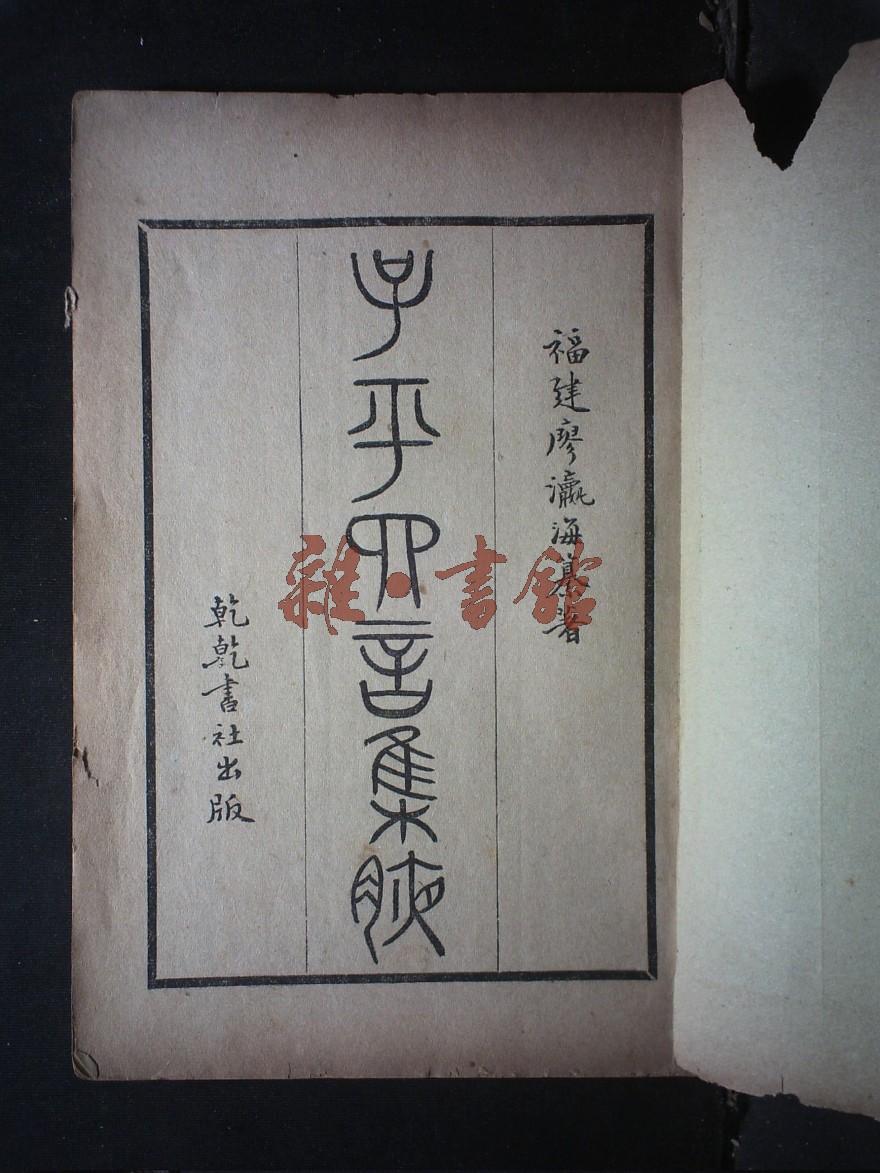 福建廖瀛海纂著
子平四言集腋
乾乾書社出版
雜·書館